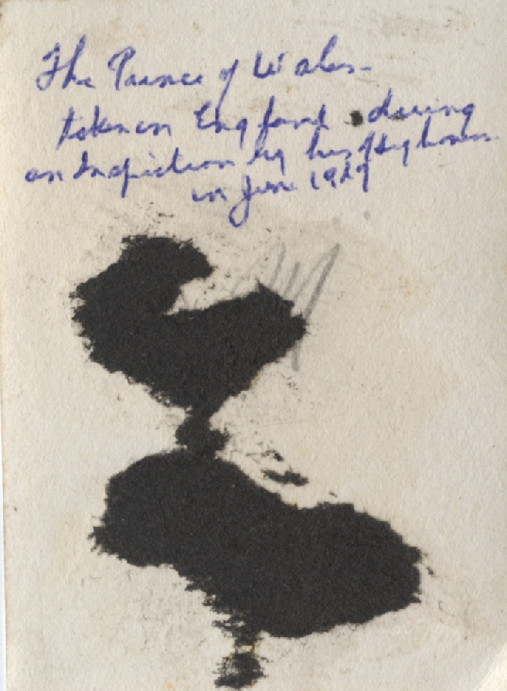 The Prince of Wales -
taken in England during
an Inspection by his Highness
in June 1929